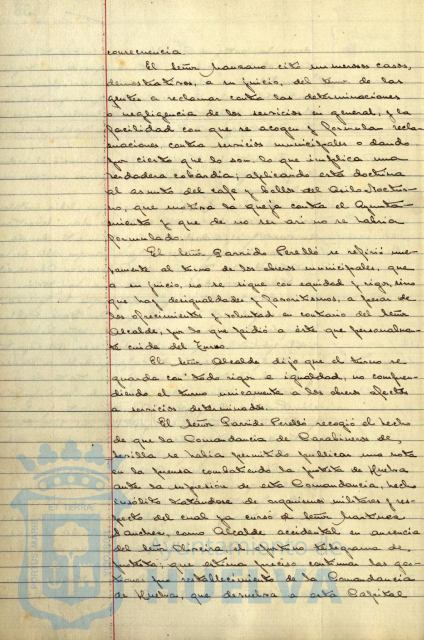 consecuencia.
El Señor Manzano citó numerosos casos,
demostrativos, a su juicio, del temor de las
gentes a reclamar contra las determinaciones
o negligencia de los servicios en general, y la
facilidad con que se acogen y formulan recla-
maciones contra servicios municipales o dando
por cierto que lo son, lo que implica una
verdadera cobardía; aplicando esta doctrina
al asunto del café y bollos del Asilo Noctur-
no, que motiva la queja contra el Ayunta-
miento y que de no ser así no se habría
formulado.
El Señor Garrido Perelló se refirió nue-
vamente al turno de los obreros municipales, que
a su juicio, no se sigue con equidad y rigor, sino
que hay desigualdades y favoritismos, a pesar de
los ofrecimientos y voluntad en contrario del Señor
Alcalde, por lo que pidió a éste que personalmen-
te cuide del turno.
El Señor Alcalde dijo que el turno se
guarda con todo rigor e igualdad, no compren-
diendo el turno unicamente a los obreros afectos
a servicios determinados.
El Señor Garrido Perelló recogió el hecho
de que la Comandancia de Carabineros de
Sevilla se había permitido publicar una nota
en la prensa combatiendo la protesta de Huelva
ante la supresión de esta Comandancia, hecho
insólito tratándose de organismos militares y res-
pecto del cual ya cursó el Señor Martínez
Sánchez, como Alcalde accidental en ausencia
del Señor el oportuno telegrama de
protesta; que estima preciso continuar las ges-
tiones por restablecimiento de la Comandancia
de Huelva, que devuelva a esta Capital